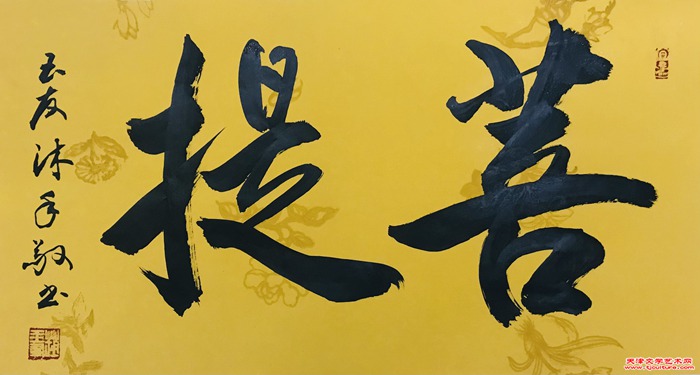 菩提
玉友沐手敬书
天津文学艺术网
www.tjculture.com